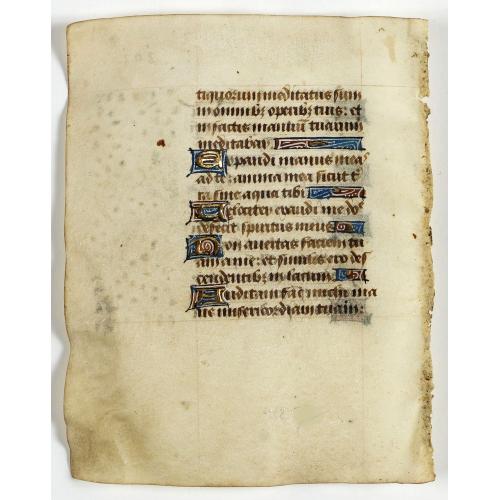 tiquorum meditatus sum
in omnibȝ operibȝ tuis: et
in factis manuū tuarum
meditabar
Expandi manus mea
ad te anima mea sicut t
ra sine aqua tibi
Velociter exaudi me do
defecit spiritus meus
Non avertas faciem tu
am a me: et similis ero des
cendentibȝ in lacum
Auditam fac michi ma
ne misericordiam tuam: